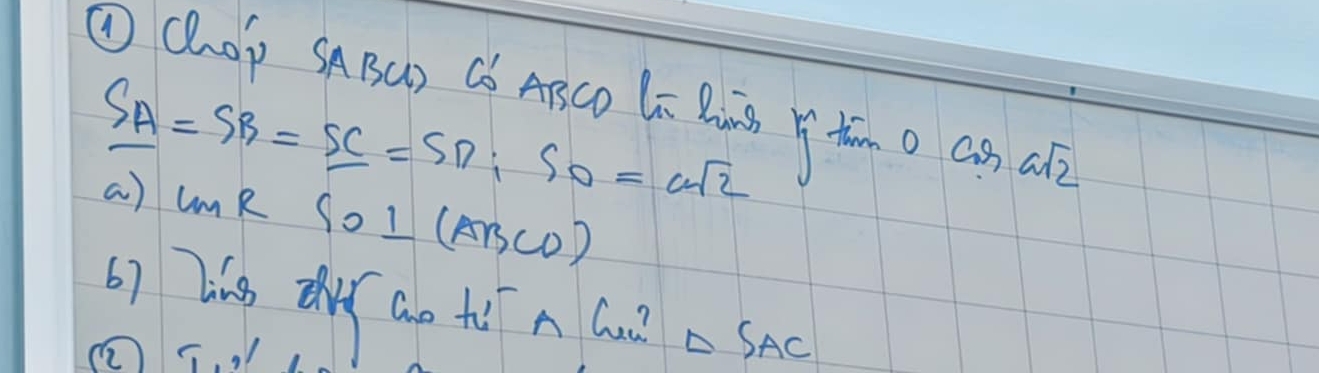 ① Chóp SABCD có ABCD là hình v̸ tâm O cạnh a√2
SA = SB = SC = SD; SO = a√2
a) CmR SO ⊥ (ABCD)
b) Tính đường cao từ A của Δ SAC
②